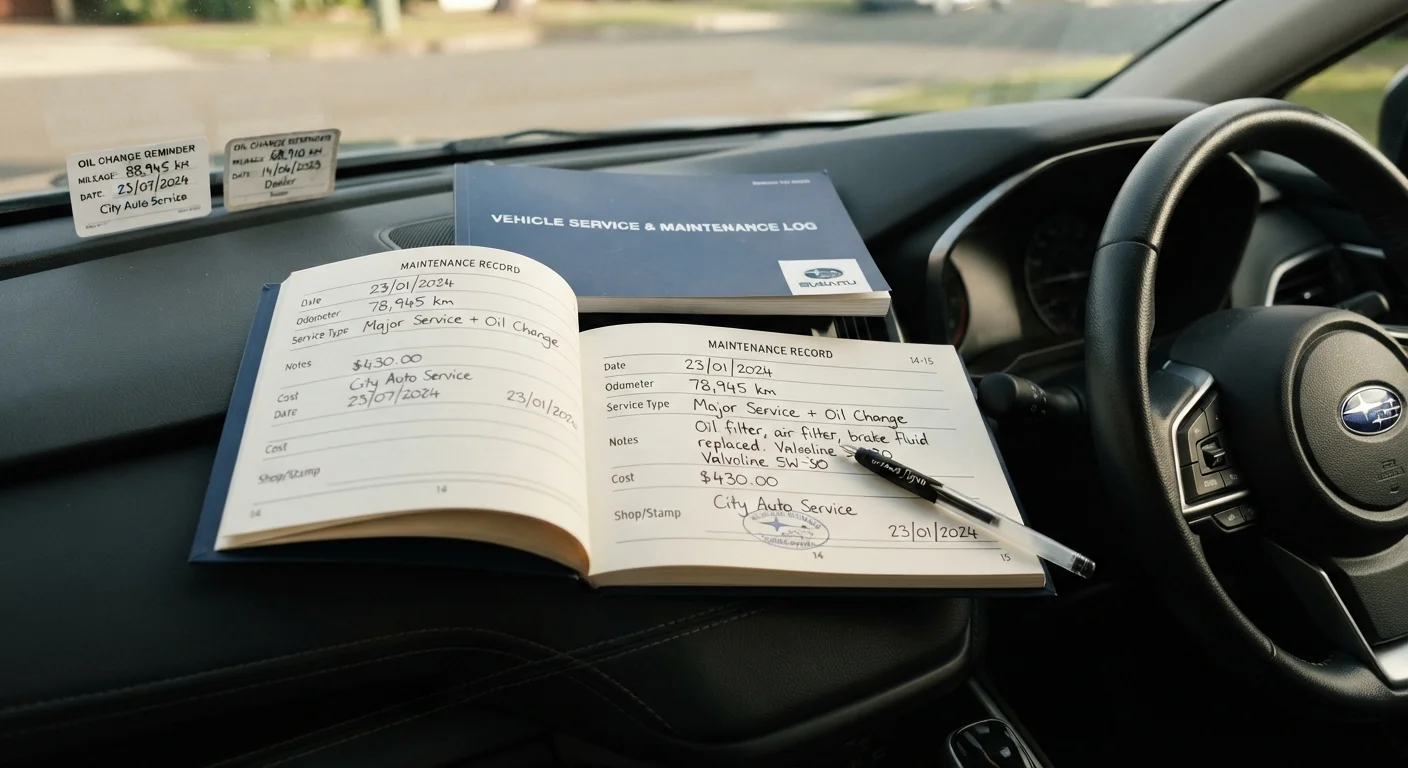 OIL CHANGE REMINDER
MILEAGE: 88,945 km
DATE: 23/07/2024
City Auto Service
OIL CHANGE
14/04/2023
Dealer
VEHICLE SERVICE & MAINTENANCE LOG
SUBARU
MAINTENANCE RECORD
Date 23/01/2024
Odometer 78,945 km
Service Type Major Service + Oil Change
Notes $430.00
Cost City Auto Service
Date 23/07/2024 23/01/2024
Cost
Shop/Stamp
14
14
MAINTENANCE RECORD 14-15
Date 23/01/2024
Odometer 78,945 km
Service Type Major Service + Oil Change
Notes Oil filter, air filter, brake fluid
replaced.
Valvoline 5W-30
Cost $430.00
Shop/Stamp City Auto Service
23/01/2024
14
15